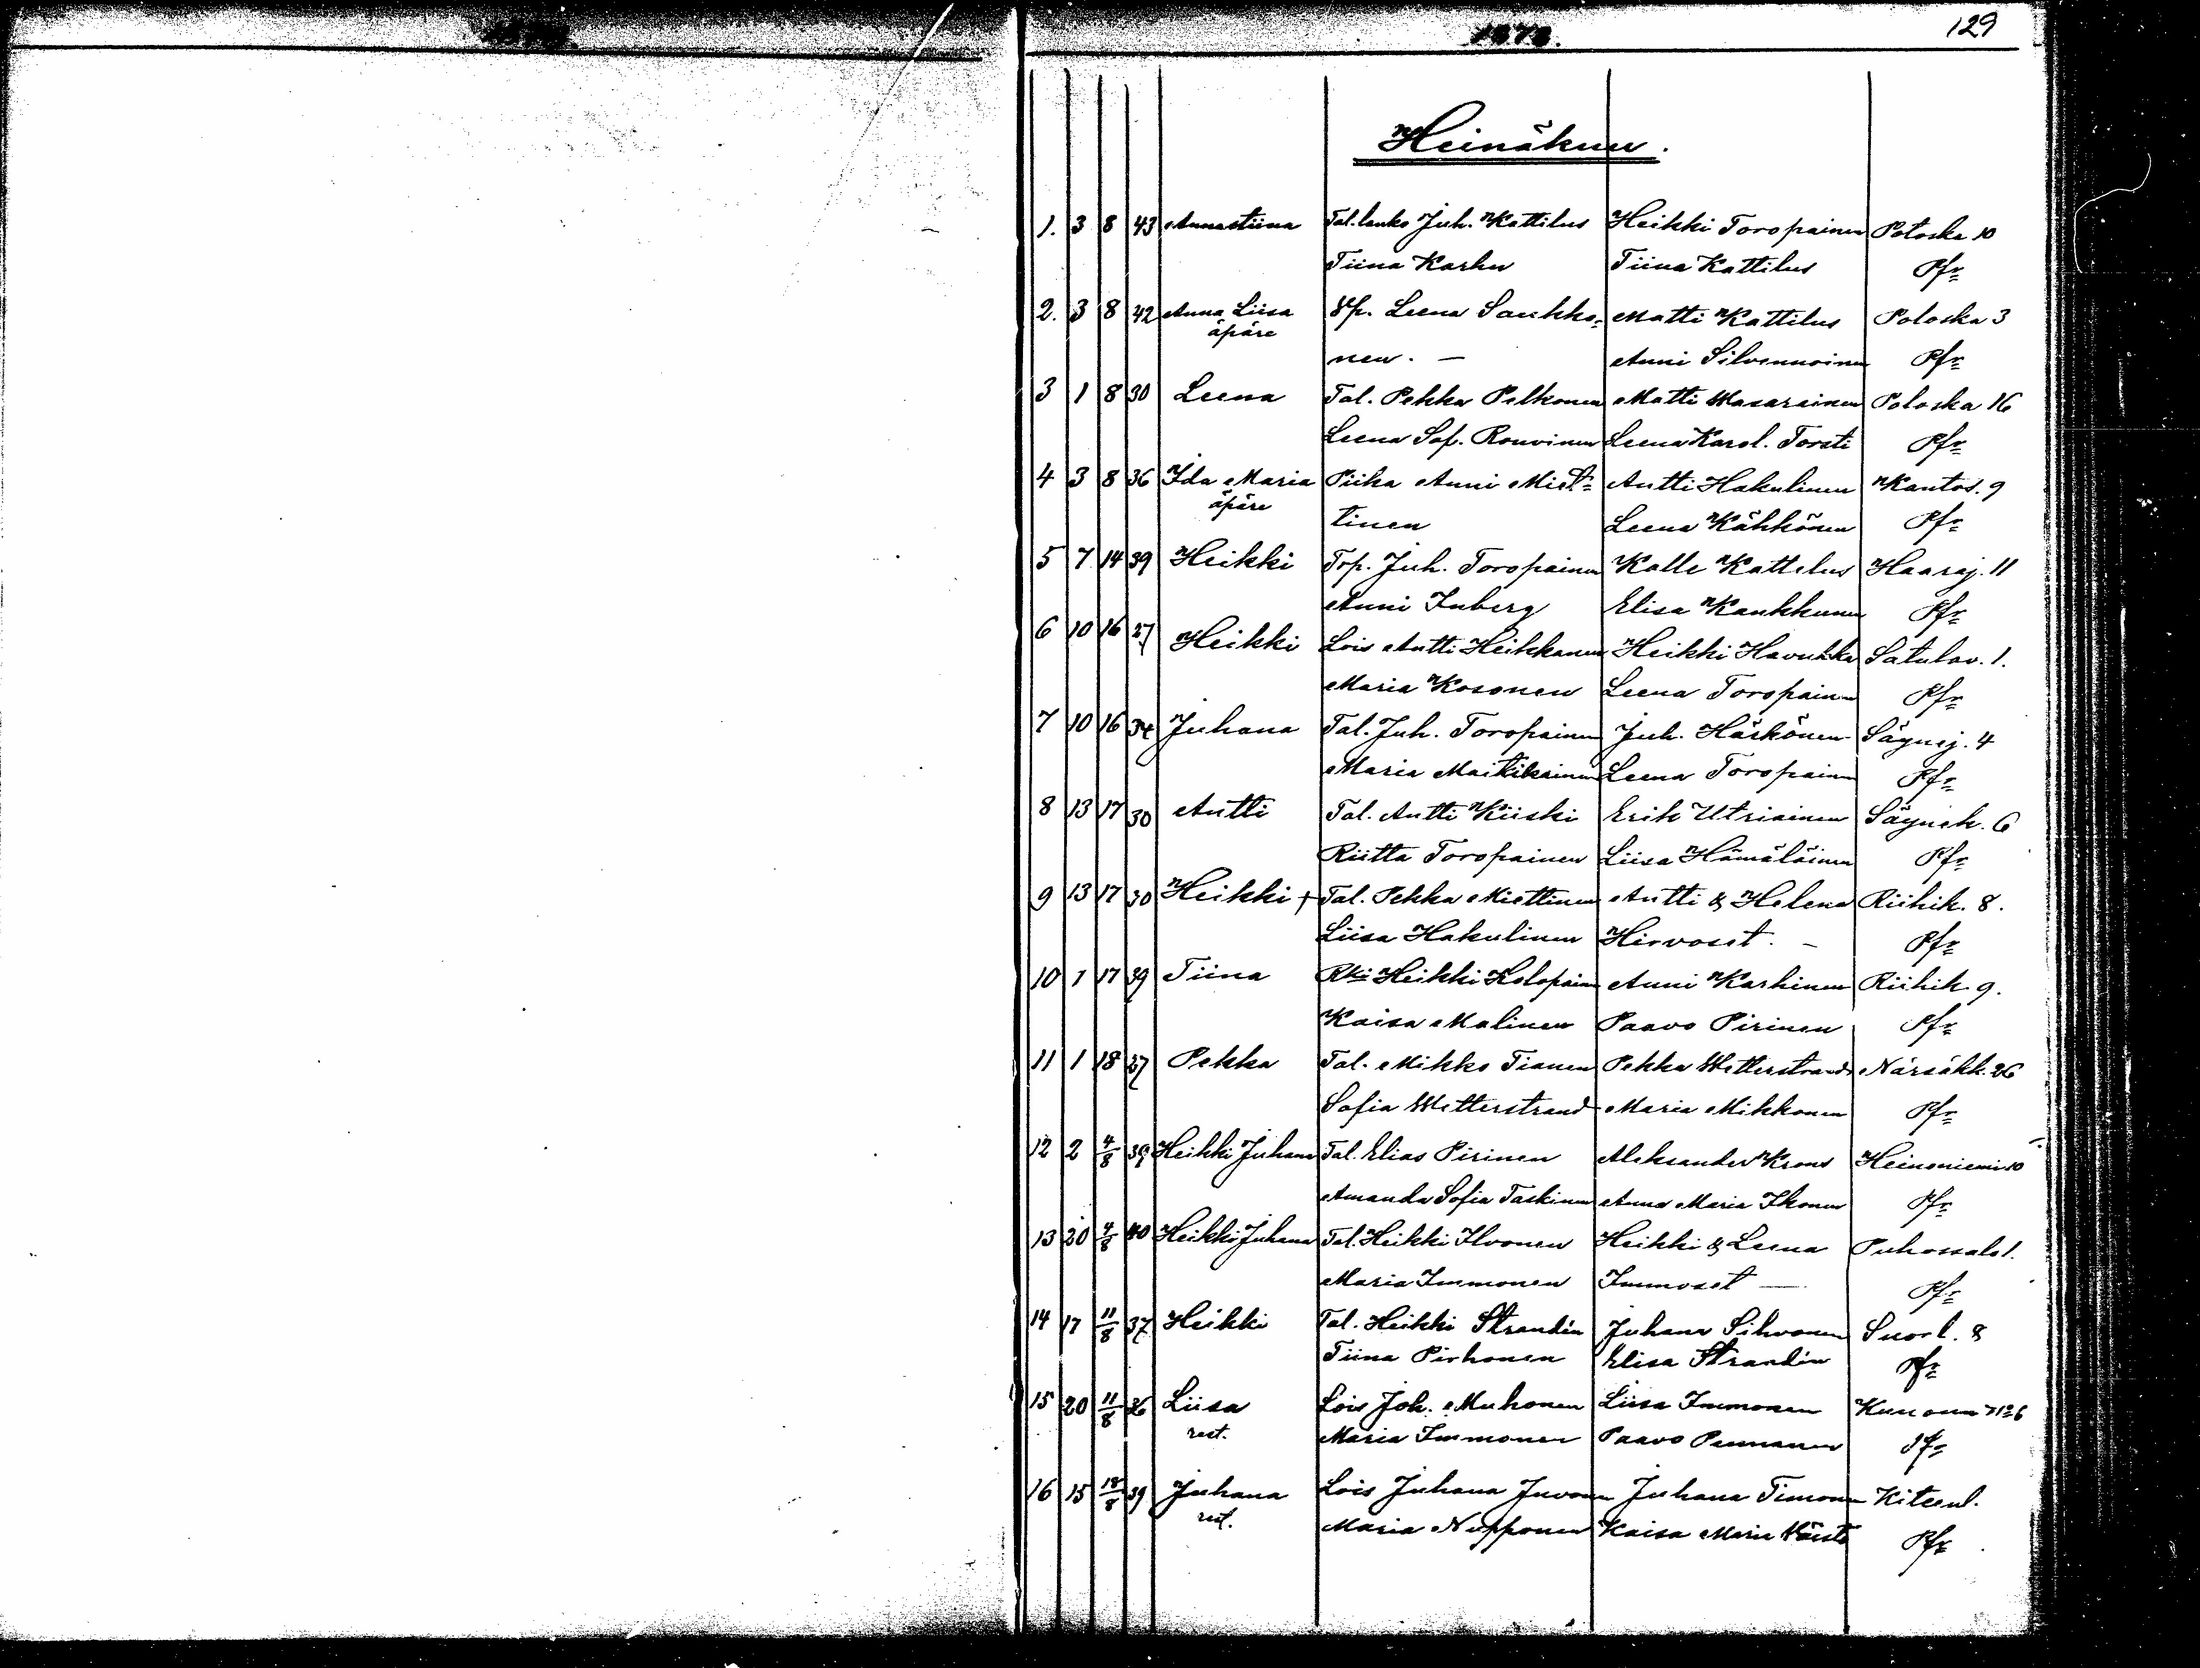 1878.
129
Heinäkuu.
1. 3 8 43 Annastiina Tal. lanko Juh. Kattilus Heikki Toropainen Potoska 10
Tiina Karhu Tiina Kattilus Pfr
2. 3 8 42 Anna Liisa Leena Saukko= Matti Kattilus Potoska 3
äpäre
nen. — Anni Silvennoinen Pfr
3 1 8 30 Leena Tal. Pekka Pelkonen Matti Wasarainen Potoska 16
Leena Sof. Rouvinen Leena Karol. Torsti Pfr
4 3 8 36 Ida Maria Piika Anni Miet= Antti Hakulinen Kantos. 9
äpäre
tinen Leena Kähkönen Pfr
5 7 14 39 Heikki Trp. Juh. Toropainen Kalle Kattelus Haaraj. 11
Anni Inberg Elisa Kaukkunen Pfr
6 10 16 27 Heikki Lois Antti Heikkanen Heikki Havukka Satulav. 1.
Maria Kosonen Leena Toropainen Pfr
7 10 16 34 Juhana Tal. Juh. Toropainen Juh. Härkönen Säynej. 4
Maria Maikikainen Leena Toropainen Pfr
8 13 17 30 Antti Tal. Antti Kiiski Erik Utriainen Säynek. 6
Riitta Toropainen Liisa Hämäläinen Pfr
9 13 17 30 Heikki + Tal. Pekka Miettinen Antti & Helena Riihik. 8.
Liisa Hakulinen Hirvoset. — Pfr
10 1 17 39 Tiina Rki Heikki Holopainen Anni Karhinen Riihik. 9.
Kaisa Malinen Paavo Pirinen Pfr
11 1 18 27 Pekka Tal. Mikko Tianen Pekka Wetterstrand Närsäkk. 26
Sofia Wetterstrand Maria Mikkonen Pfr
12 2 4/8 39 Heikki Juhana Tal. Elias Pirinen Aleksander Krons Heinoniemi 10
Amanda Sofia Taskinen Anna Maria Ikonen Pfr
13 20 4/8 40 Heikki Juhana Tal. Heikki Ilvonen Heikki & Leena Puhossalo 1.
Maria Immonen Immoset — Pfr
14 17 11/8 37 Heikki Tal. Heikki Strandén Juhana Sihvonen Suorl. 8
Tiina Pirhonen Elisa Strandén Pfr
15 20 11/8 26 Liisa Lois Joh. Muhonen Liisa Immonen
rest. Maria Immonen Paavo Pennanen Pfr
16 15 18/8 39 Juhana Lois Juhana Juvonen Juhana Timonen Kiteenl.
rest. Maria Nupponen Kaisa Maria Väistö Pfr